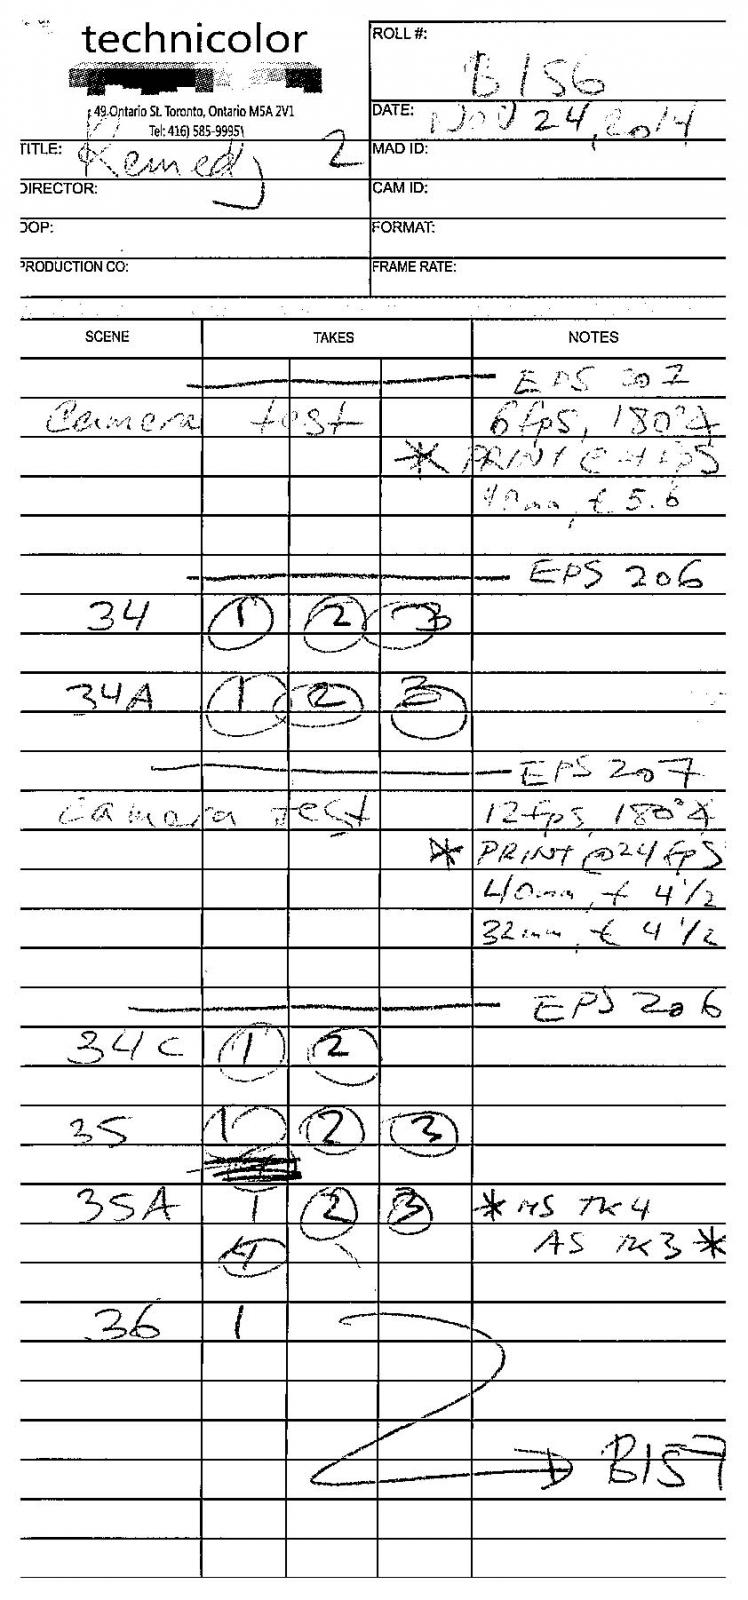 technicolor
49 Ontario St. Toronto, Ontario M5A 2V1
Tel: 416) 585-9995
ROLL #: B156
DATE: NOV 24, 2014
TITLE: Remedy 2
MAD ID:
DIRECTOR:
CAM ID:
DOP:
FORMAT:
PRODUCTION CO:
FRAME RATE:
SCENE TAKES NOTES
EPS 207
Camera test 6fps, 180°
* PRINT @ fps
40mm, t 5.6
EPS 206
34 1 2 3
34A 1 2 3
EPS 207
Camera test 12fps, 180°
* PRINT @ 24 fps
40mm, t 4 1/2
32mm, t 4 1/2
EPS 206
34C 1 2
35 1 2 3
35A 1 2 3 * MS TK 4
4 AS TK 3 *
36 1
B157